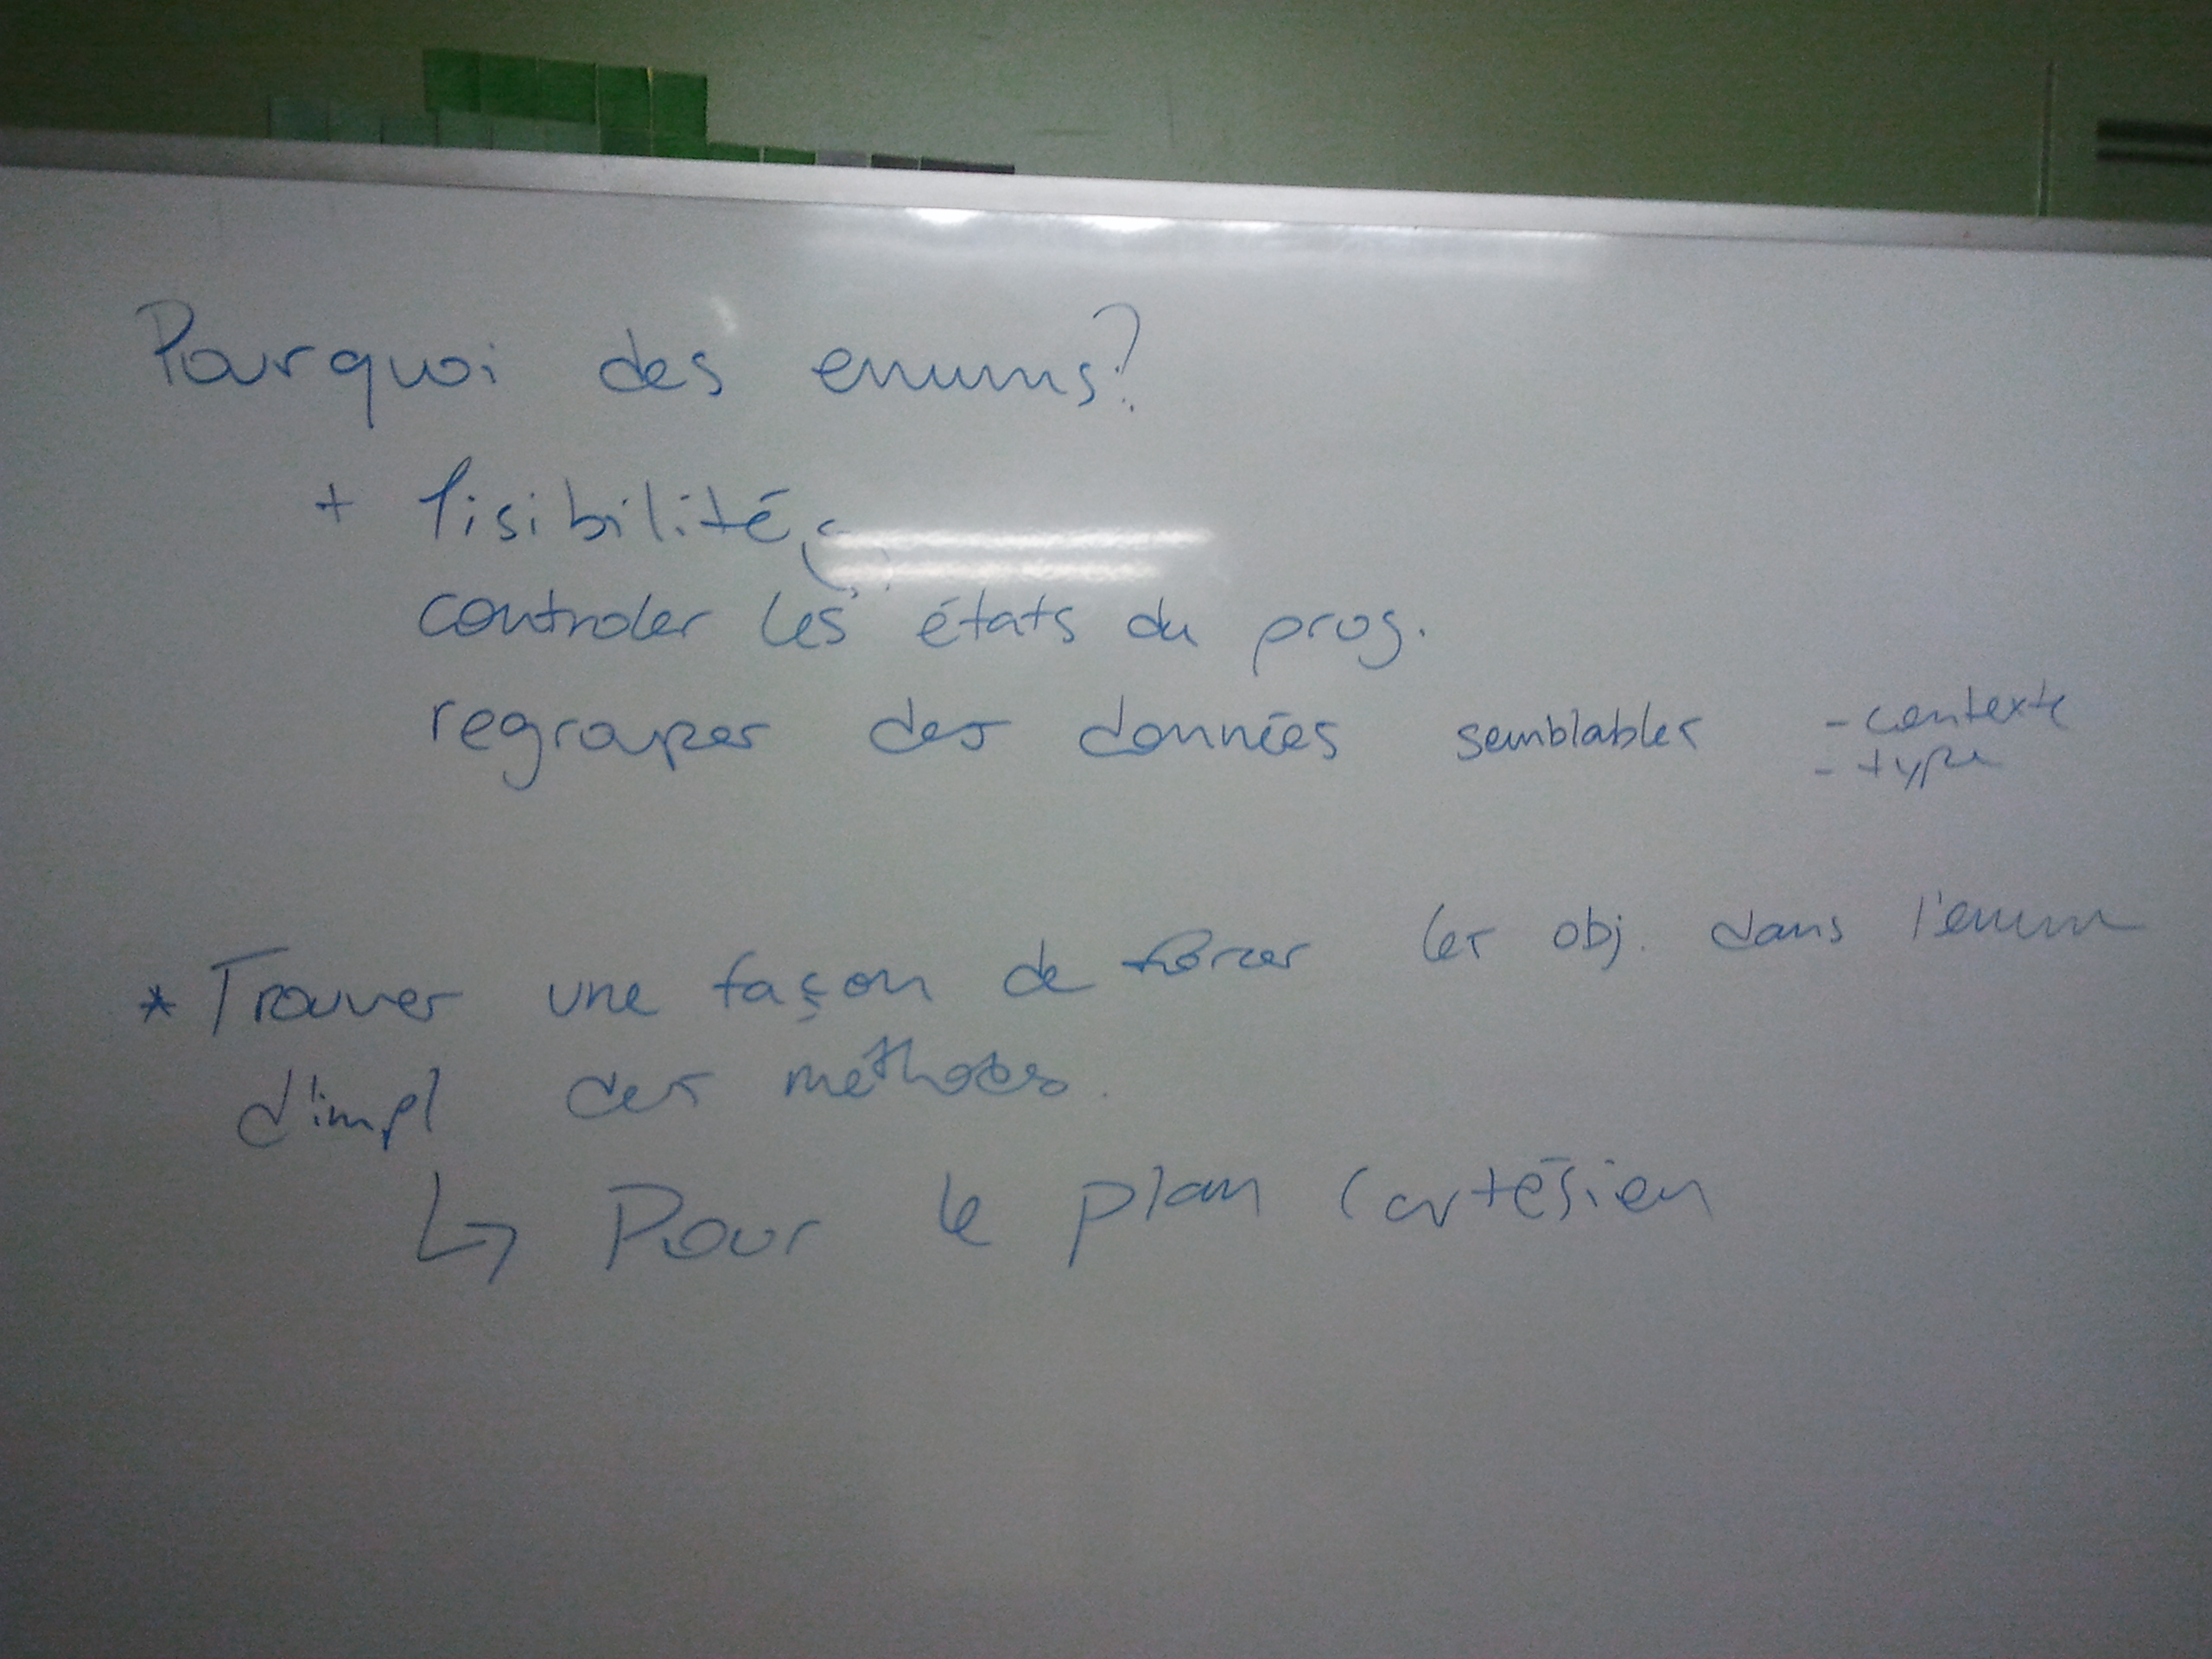 Pourquoi des enums?
+ lisibilité
controler les états du prog.
regrouper des données semblables - contexte
- type
* Trouver une façon de forcer les obj. dans l'enum
d'impl des méthodes.
↳ Pour le plan Cartésien